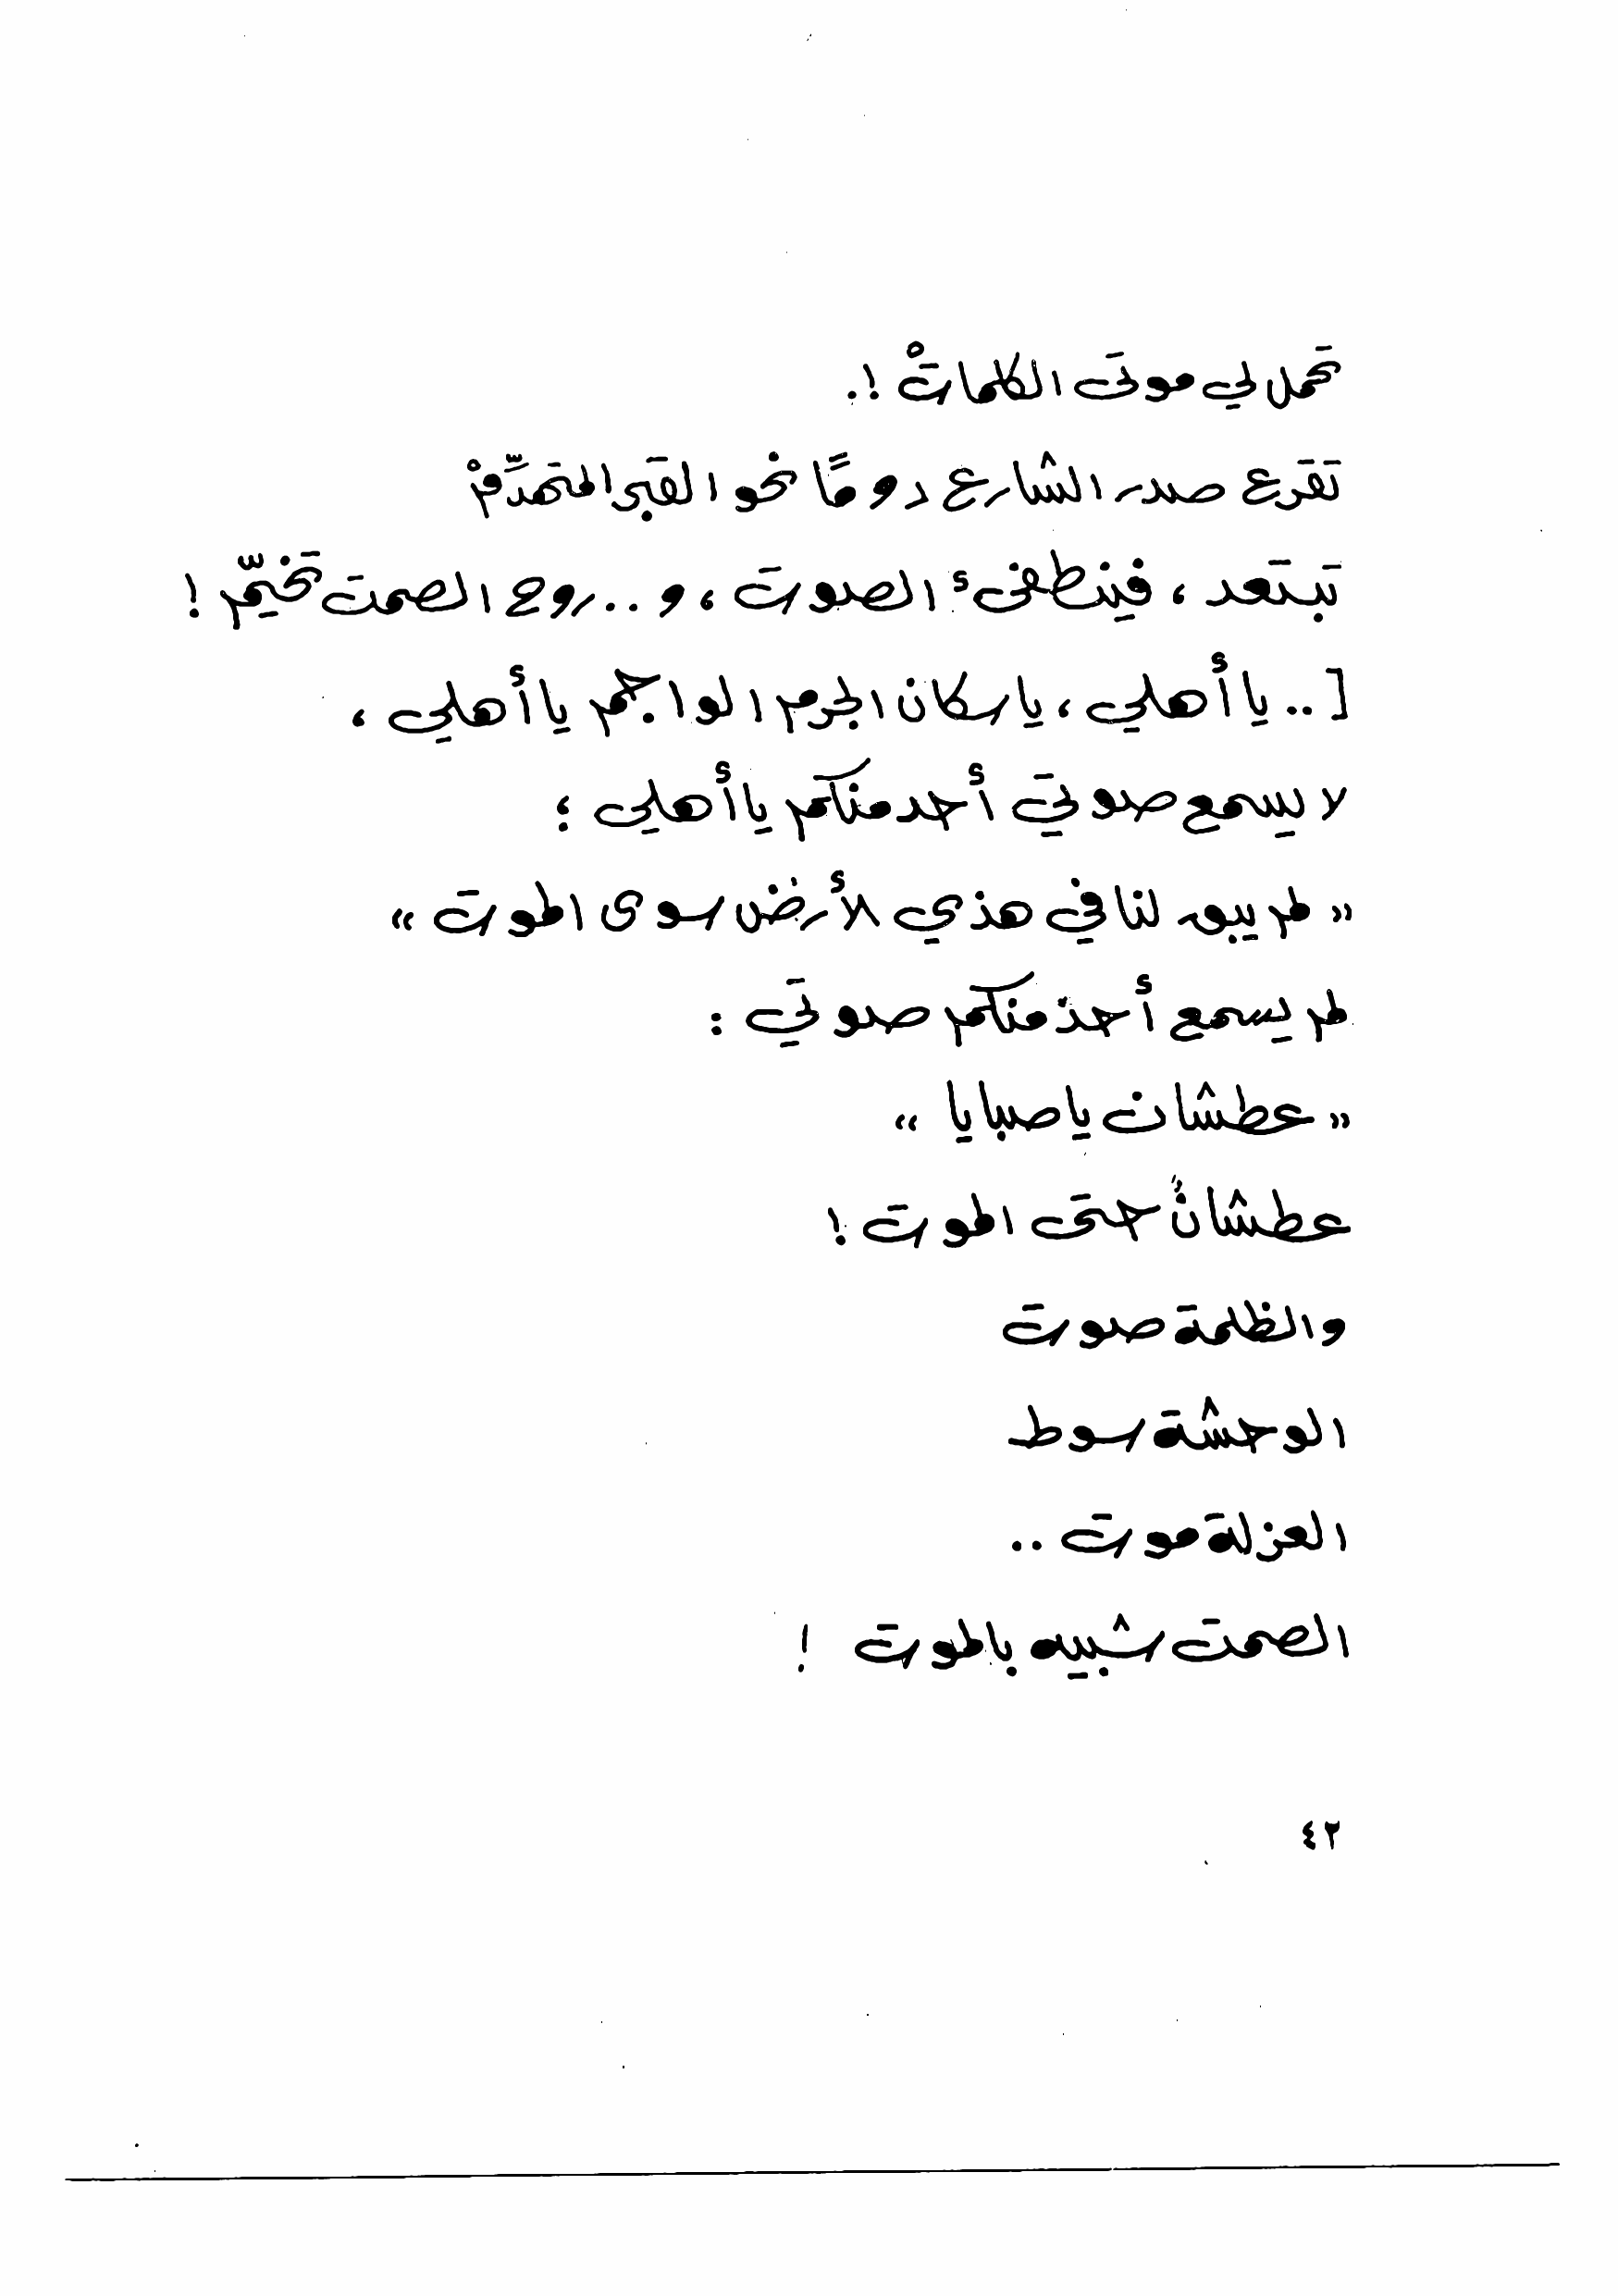 تحمل لي موتى الكلماتْ !.
تقرع صدر الشارع دومًا نحو القبر المتهدِّمْ
تبتعد ، فينطفئ الصوت ، و .. روح الصمت تخيّم !
[ .. يا أهلي ، يا سكان الجرم الواجم يا أهلي ،
لا يسمع صوتي أحد منكم يا أهلي ؛
« لم يبق لنا في هذي الأرض سوى الموت »
لم يسمع أحد منكم صوتي :
« عطشان يا صبايا »
عطشانٌ حتى الموت !
والظلمة صوت
الوحشة سوط
العزلة موت ..
الصمت شبيه بالموت !
٤٢